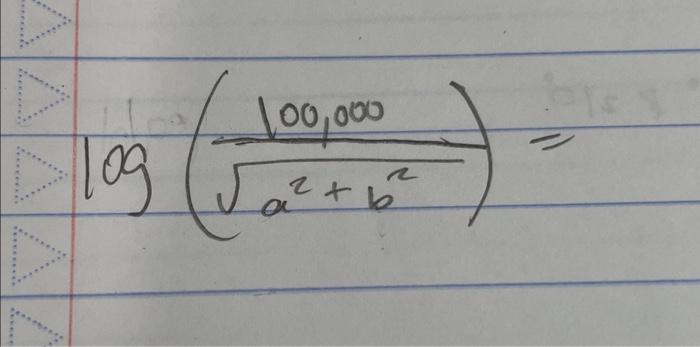 log(100,000/√(a²+b²)) =